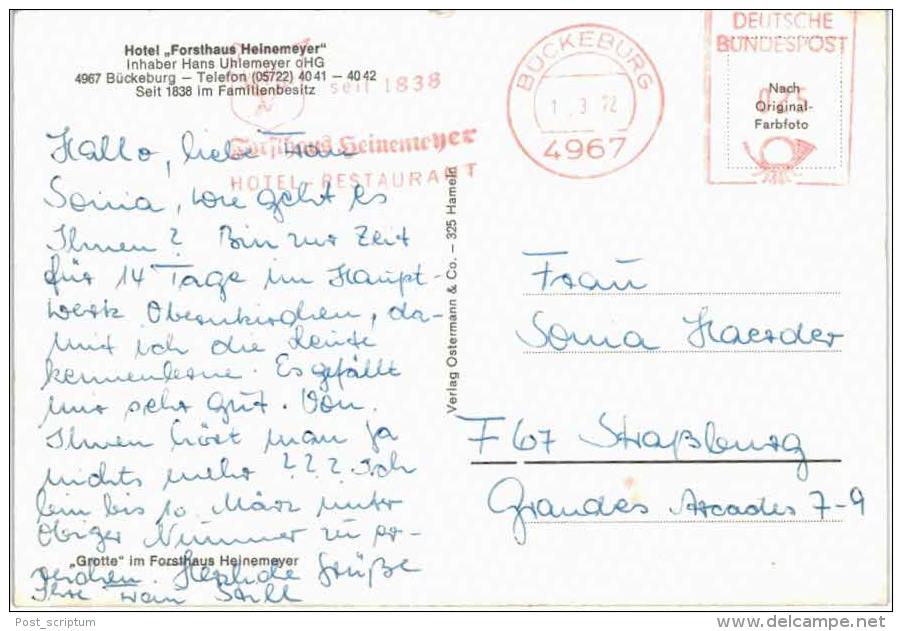 Hotel „Forsthaus Heinemeyer"
Inhaber Hans Uhlemeyer oHG
4967 Bückeburg – Telefon (05722) 40 41 – 40 42
Seit 1838 im Familienbesitz
seit 1838
Forsthaus Heinemeyer
HOTEL-RESTAURANT
BÜCKEBURG
1.3.72
4967
DEUTSCHE
BUNDESPOST
Nach
Original-
Farbfoto
Hallo, liebe Frau
Sonia, wie geht es
Ihnen? Bin zur Zeit
für 14 Tage im Haupt-
werk Obernkirchen, da-
mit ich die Leute
kennenlerne. Es gefällt
mir sehr gut. Von
Ihnen hört man ja
nichts mehr ??? Ich
bin bis 10. März unter
obiger Nummer zu er-
reichen. Herzliche Grüße
Ihre
„Grotte" im Forsthaus Heinemeyer
Verlag Ostermann & Co. – 325 Hameln
Frau
Sonia Haerder
F 67 Straßburg
Grandes Arcades 7-9
Post_scriptum
www.delcampe.net